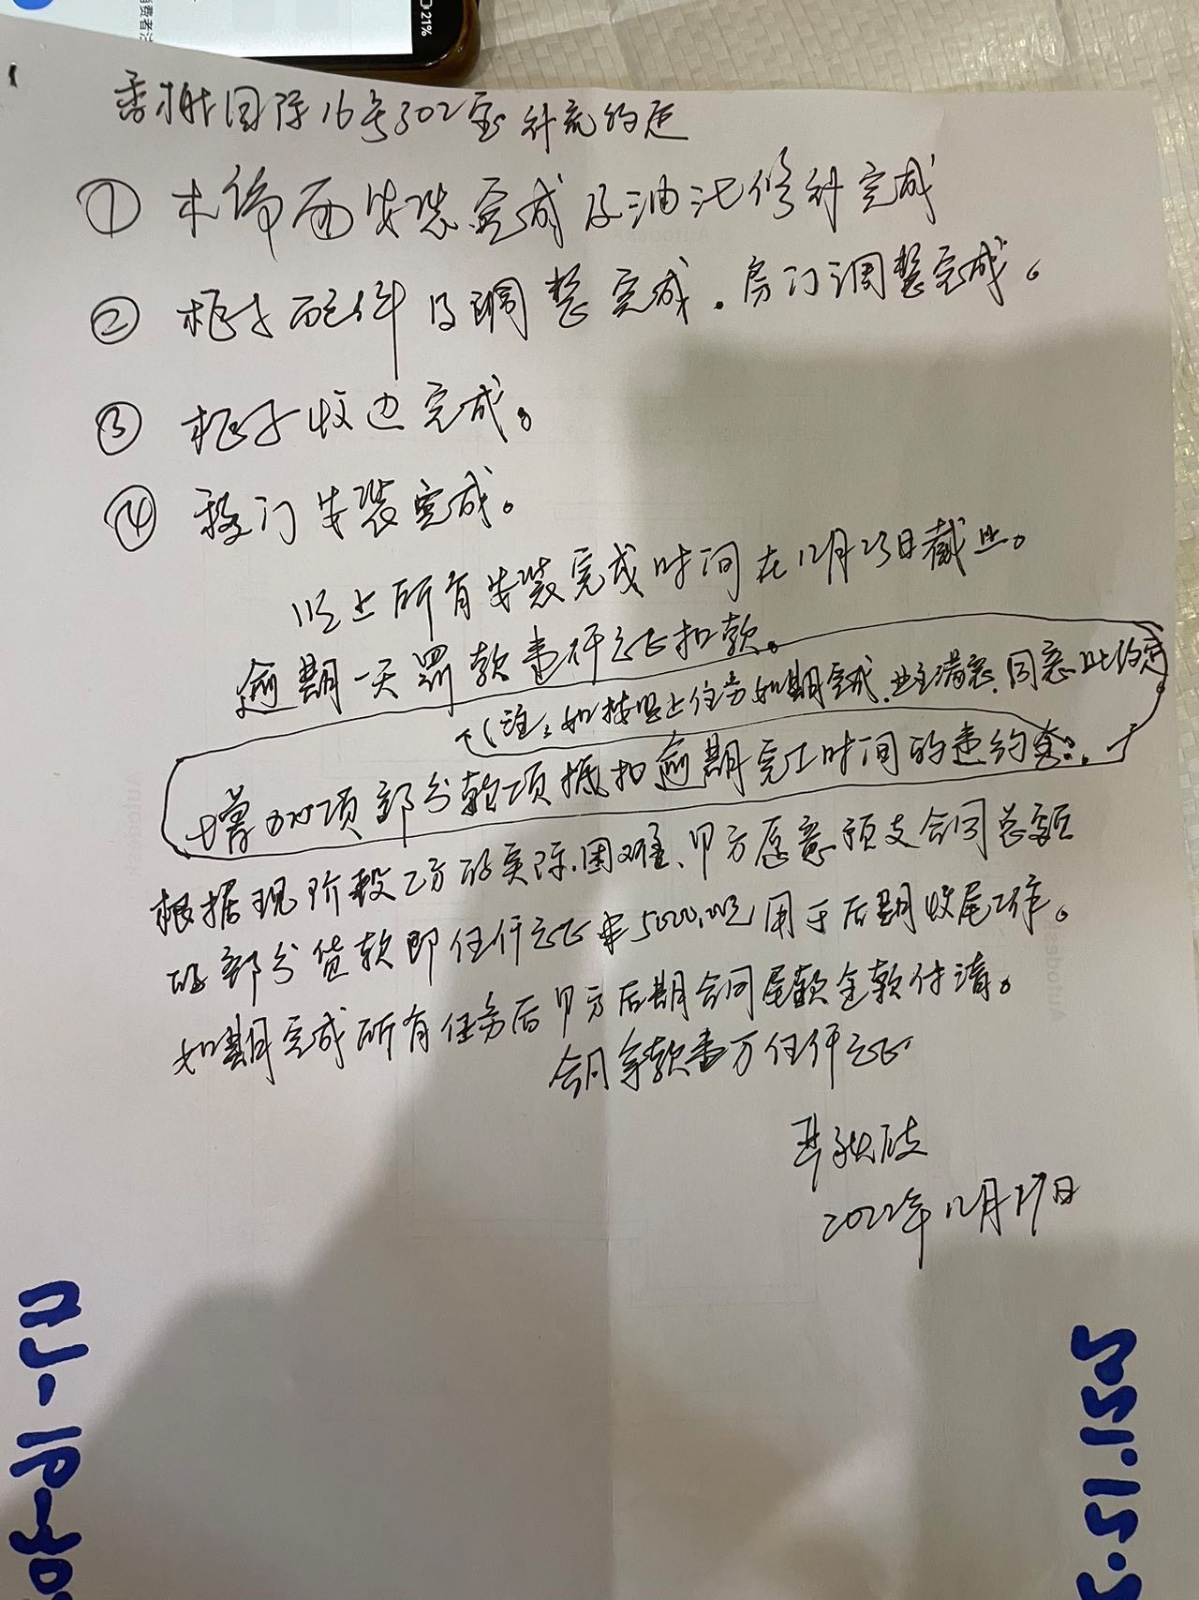 21%
消费者
香榭国际16号302室补充约定
① 木饰面安装完成及油漆修补完成
② 柜子配件及调整完成.房门调整完成。
③ 柜子收边完成。
④ 移门安装完成。
以上所有安装完成时间在12月23日截止。
逾期一天罚款壹仟元正扣款。
(注:如按照以上任务如期完成.业主满意.同意此约定
增加项部分款项抵扣逾期完工时间的违约金
根据现阶段乙方的实际.困难、甲方愿意预支合同总额
的部分货款即伍仟元正 5000.00元用于后期收尾工作。
如期完成所有任务后甲方后期合同尾款全款付清。
合同余款壹万伍仟元正
2022年12月19日